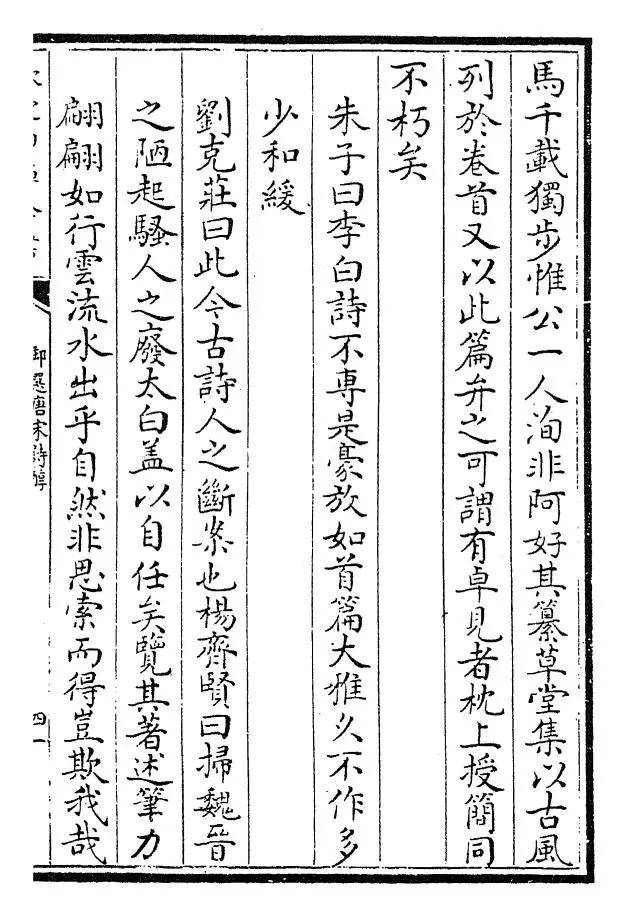 馬千載獨步惟公一人洵非阿好其纂草堂集以古風
列於卷首又以此篇弁之可謂有卓見者枕上授簡同
不朽矣
朱子曰李白詩不専是豪放如首篇大雅久不作多
少和緩
劉克莊曰此今古詩人之斷案也楊齊賢曰掃魏晉
之陋起騷人之廢太白盖以自任矣覽其著述筆力
翩翩如行雲流水出乎自然非思索而得豈欺我哉
御選唐宋詩醇
四一